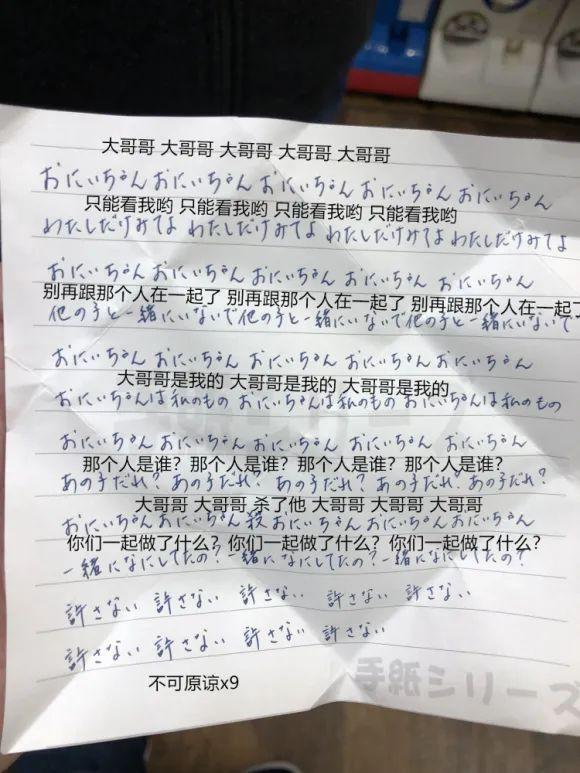 大哥哥 大哥哥 大哥哥 大哥哥 大哥哥
おにいちゃん おにいちゃん おにいちゃん おにいちゃん おにいちゃん
只能看我哟 只能看我哟 只能看我哟 只能看我哟
わたしだけみてよ わたしだけみてよ わたしだけみてよ わたしだけみてよ
おにいちゃん おにいちゃん おにいちゃん おにいちゃん おにいちゃん
别再跟那个人在一起了 别再跟那个人在一起了 别再跟那个人在一起了
他の子と一緒にいないで他の子と一緒にいないで他の子と一緒にいないで
おにいちゃん おにいちゃん おにいちゃん おにいちゃん おにいちゃん
大哥哥是我的 大哥哥是我的 大哥哥是我的
おにいちゃんは私のもの おにいちゃんは私のもの おにいちゃんは私のもの
おにいちゃん おにいちゃん おにいちゃん おにいちゃん おにいちゃん
那个人是谁？那个人是谁？那个人是谁？那个人是谁？
あの子だれ？あの子だれ？あの子だれ？あの子だれ？あの子だれ？
大哥哥 大哥哥 杀了他 大哥哥 大哥哥 大哥哥
おにいちゃん おにいちゃん 殺 おにいちゃん おにいちゃん おにいちゃん
你们一起做了什么？你们一起做了什么？你们一起做了什么？
一緒になにしてたの？一緒になにしてたの？一緒になにしてたの？
許さない 許さない 許さない 許さない 許さない
許さない 許さない 許さない 許さない
手紙シリーズ
不可原谅x9